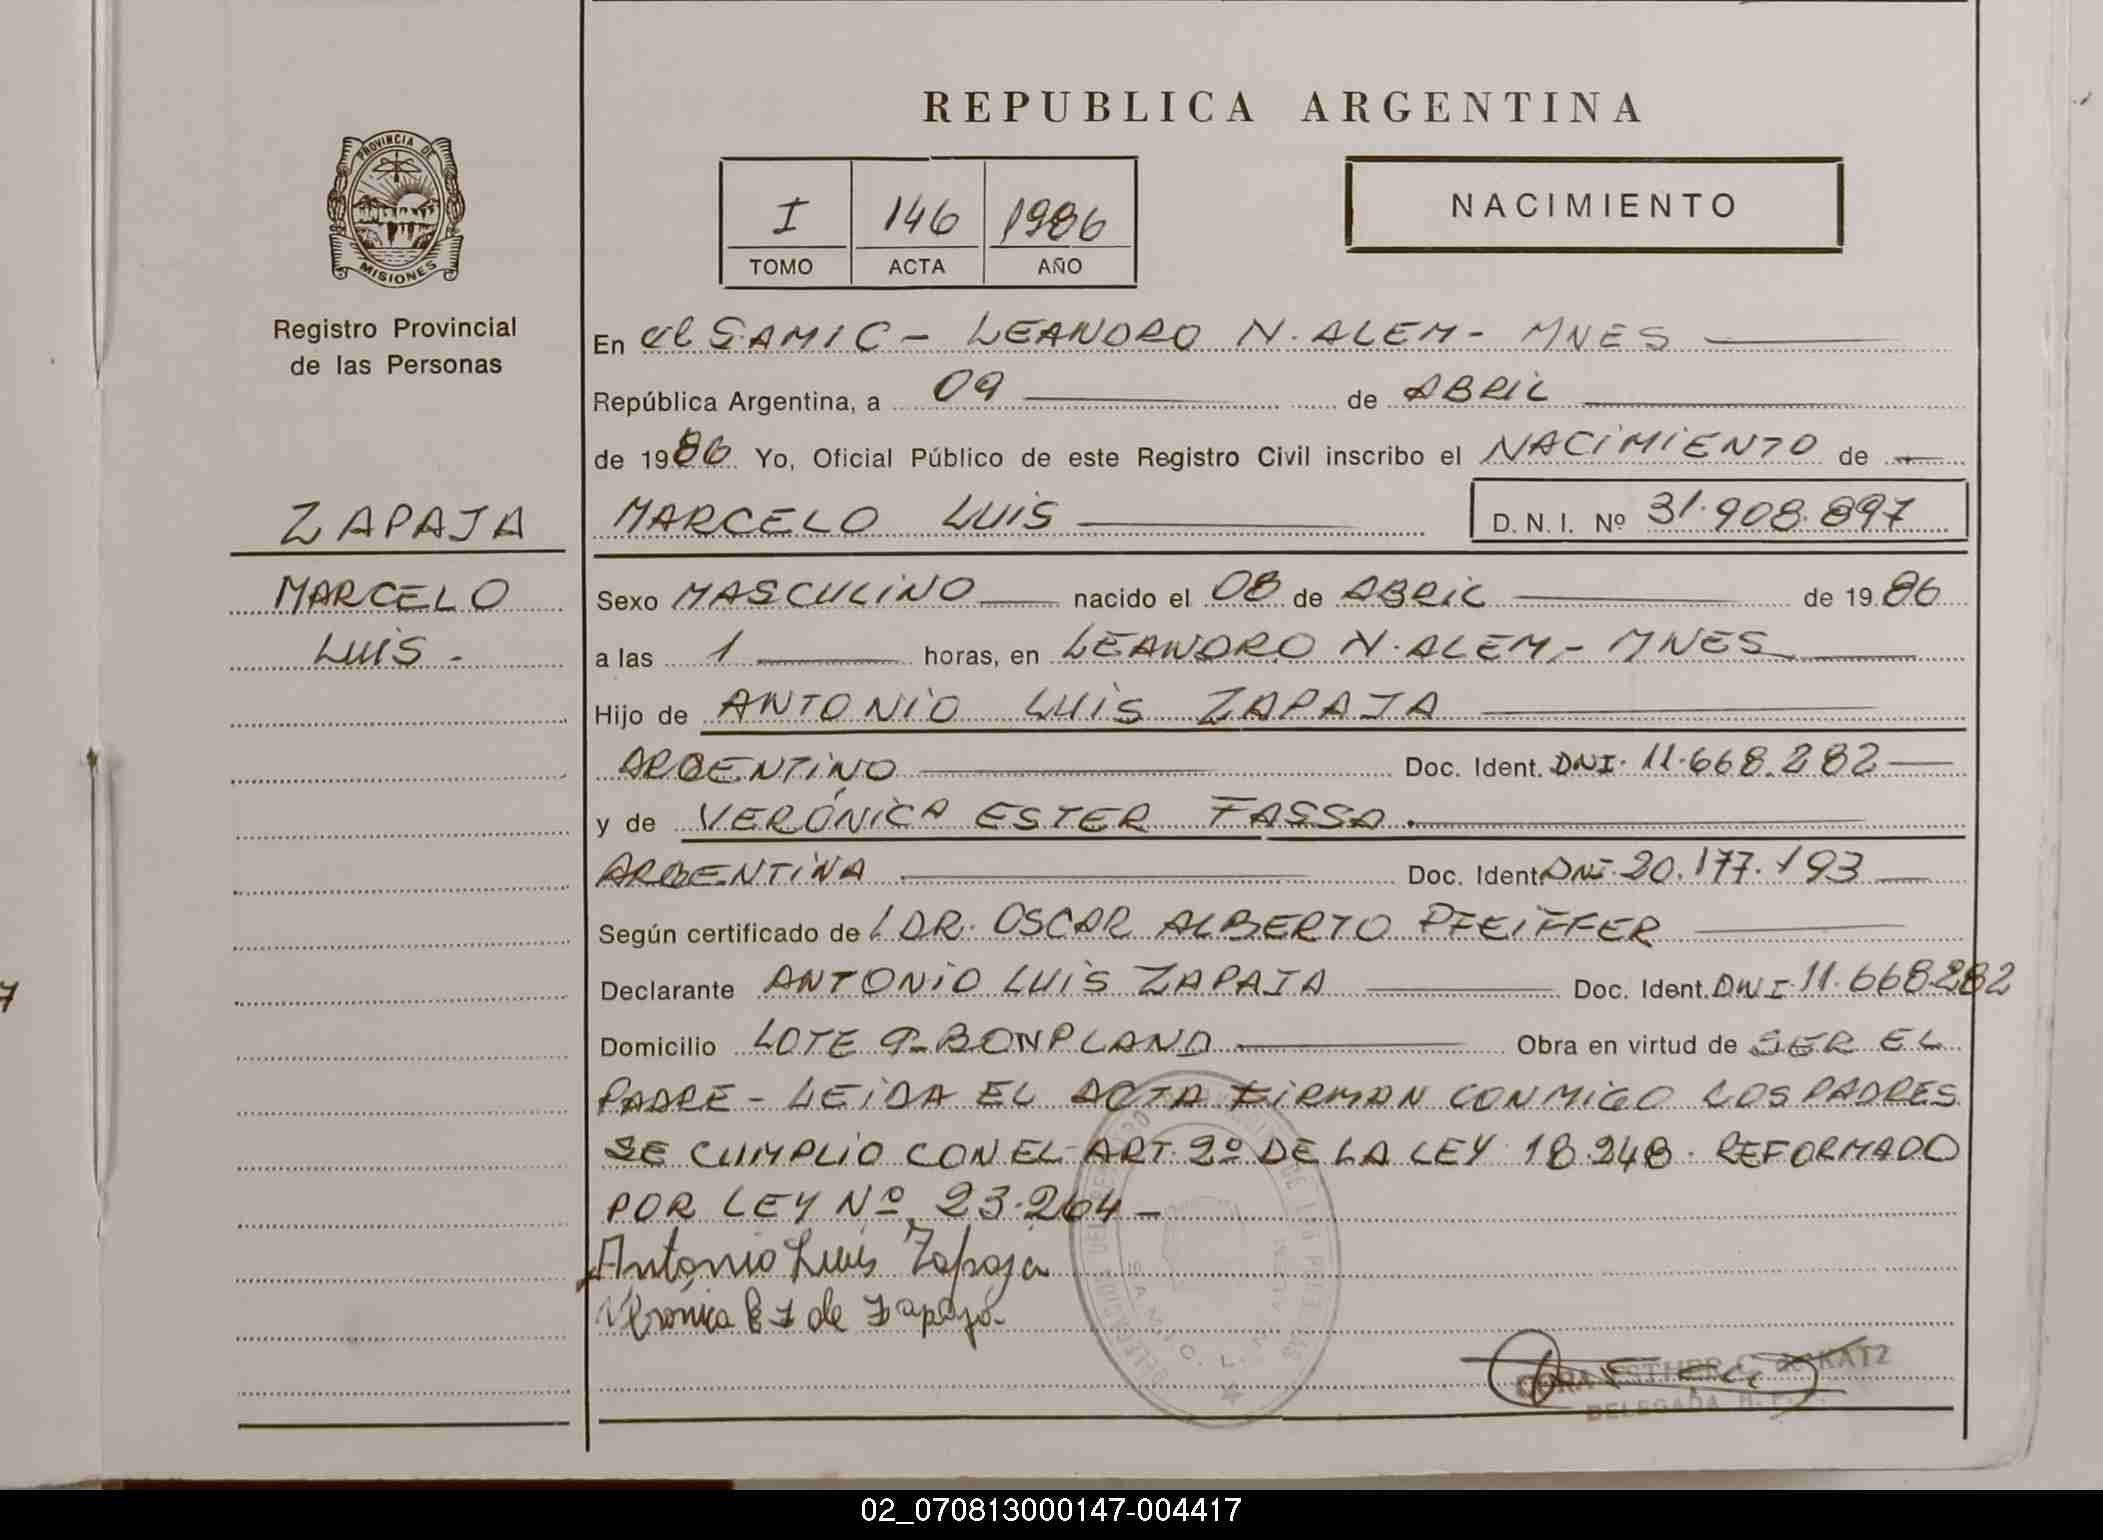 REPUBLICA ARGENTINA
PROVINCIA DE
MISIONES
Registro Provincial
de las Personas
I 146 1986
TOMO ACTA AÑO
NACIMIENTO
En el SAMIC - LEANDRO N. ALEM - MNES
República Argentina, a 09 de ABRIL
de 1986 Yo, Oficial Público de este Registro Civil inscribo el NACIMIENTO de
ZAPAJA
MARCELO LUIS D. N. I. Nº 31.908.897
MARCELO
LUIS -
Sexo MASCULINO nacido el 08 de ABRIL de 1986
a las 1 horas, en LEANDRO N. ALEM - MNES
Hijo de ANTONIO LUIS ZAPAJA
ARGENTINO Doc. Ident. DNI. 11.668.282
y de VERÓNICA ESTER FASSA.
ARGENTINA Doc. Ident. DNI. 20.177.193
Según certificado de DR. OSCAR ALBERTO PFEIFFER
Declarante ANTONIO LUIS ZAPAJA Doc. Ident. DNI 11.668.282
Domicilio LOTE 9 - BONPLAND Obra en virtud de SER EL
PADRE - LEIDA EL ACTA FIRMAN CONMIGO LOS PADRES
SE CUMPLIO CON EL ART. 2º DE LA LEY 18.248. REFORMADO
POR LEY Nº 23.264 -
Antonio Luis Zapaja
Verónica E F de Zapaja
ESTHER KATZ
DELEGADA
02_070813000147-004417